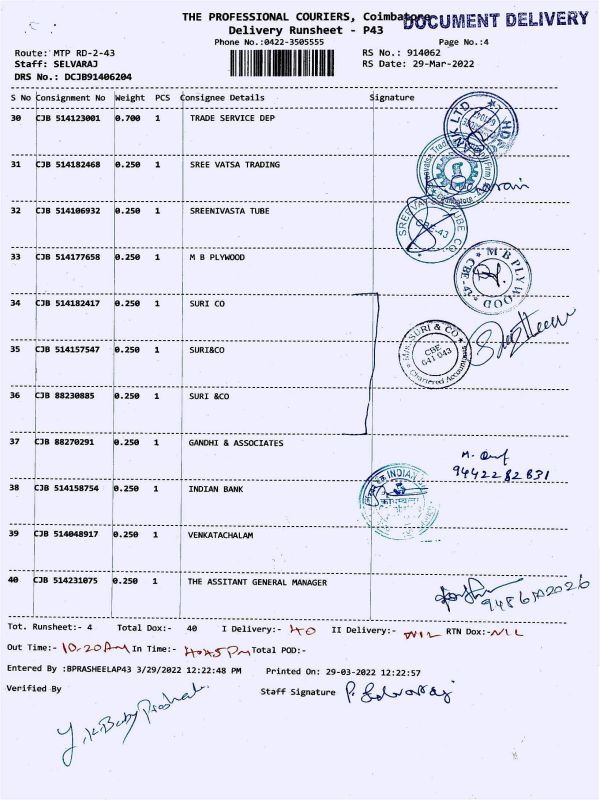 THE PROFESSIONAL COURIERS, Coimbatore
DOCUMENT DELIVERY
Delivery Runsheet - P43
Phone No.:0422-3505555
Page No.:4
Route: MTP RD-2-43
RS No.: 914062
Staff: SELVARAJ
RS Date: 29-Mar-2022
DRS No.: DCJB91406204
S No Consignment No Weight PCS Consignee Details Signature
30 CJB 514123001 0.700 1 TRADE SERVICE DEP
31 CJB 514182468 0.250 1 SREE VATSA TRADING
32 CJB 514106932 0.250 1 SREENIVASTA TUBE
SREEVATSA TUBE CO
CBE-43
33 CJB 514177658 0.250 1 M B PLYWOOD
M B PLYWOOD
CBE-43
34 CJB 514182417 0.250 1 SURI CO
M/s. SURI & CO
CBE
641 043
Chartered Accountants
35 CJB 514157547 0.250 1 SURI&CO
36 CJB 88230885 0.250 1 SURI &CO
37 CJB 88270291 0.250 1 GANDHI & ASSOCIATES
9442282831
38 CJB 514158754 0.250 1 INDIAN BANK
INDIAN
39 CJB 514048917 0.250 1 VENKATACHALAM
40 CJB 514231075 0.250 1 THE ASSITANT GENERAL MANAGER
Tot. Runsheet:- 4 Total Dox:- 40 I Delivery:- 40 II Delivery:- NIL RTN Dox:- NIL
Out Time:- 10.20AM In Time:- 4.45PM Total POD:-
Entered By :BPRASHEELAP43 3/29/2022 12:22:48 PM Printed On: 29-03-2022 12:22:57
Verified By
Staff Signature P. Selvaraj